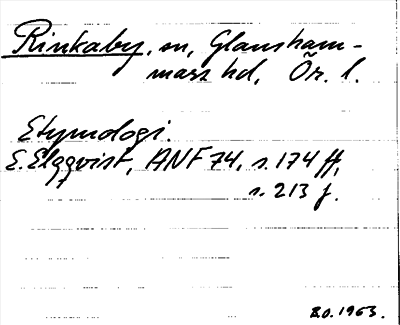 Rinkaby, sn, Glansham-
mars hd, Ör. l.
Etymologi.
E. Elgqvist, ANF 74, s. 174 ff,
s. 213 f.
B.O. 1963.